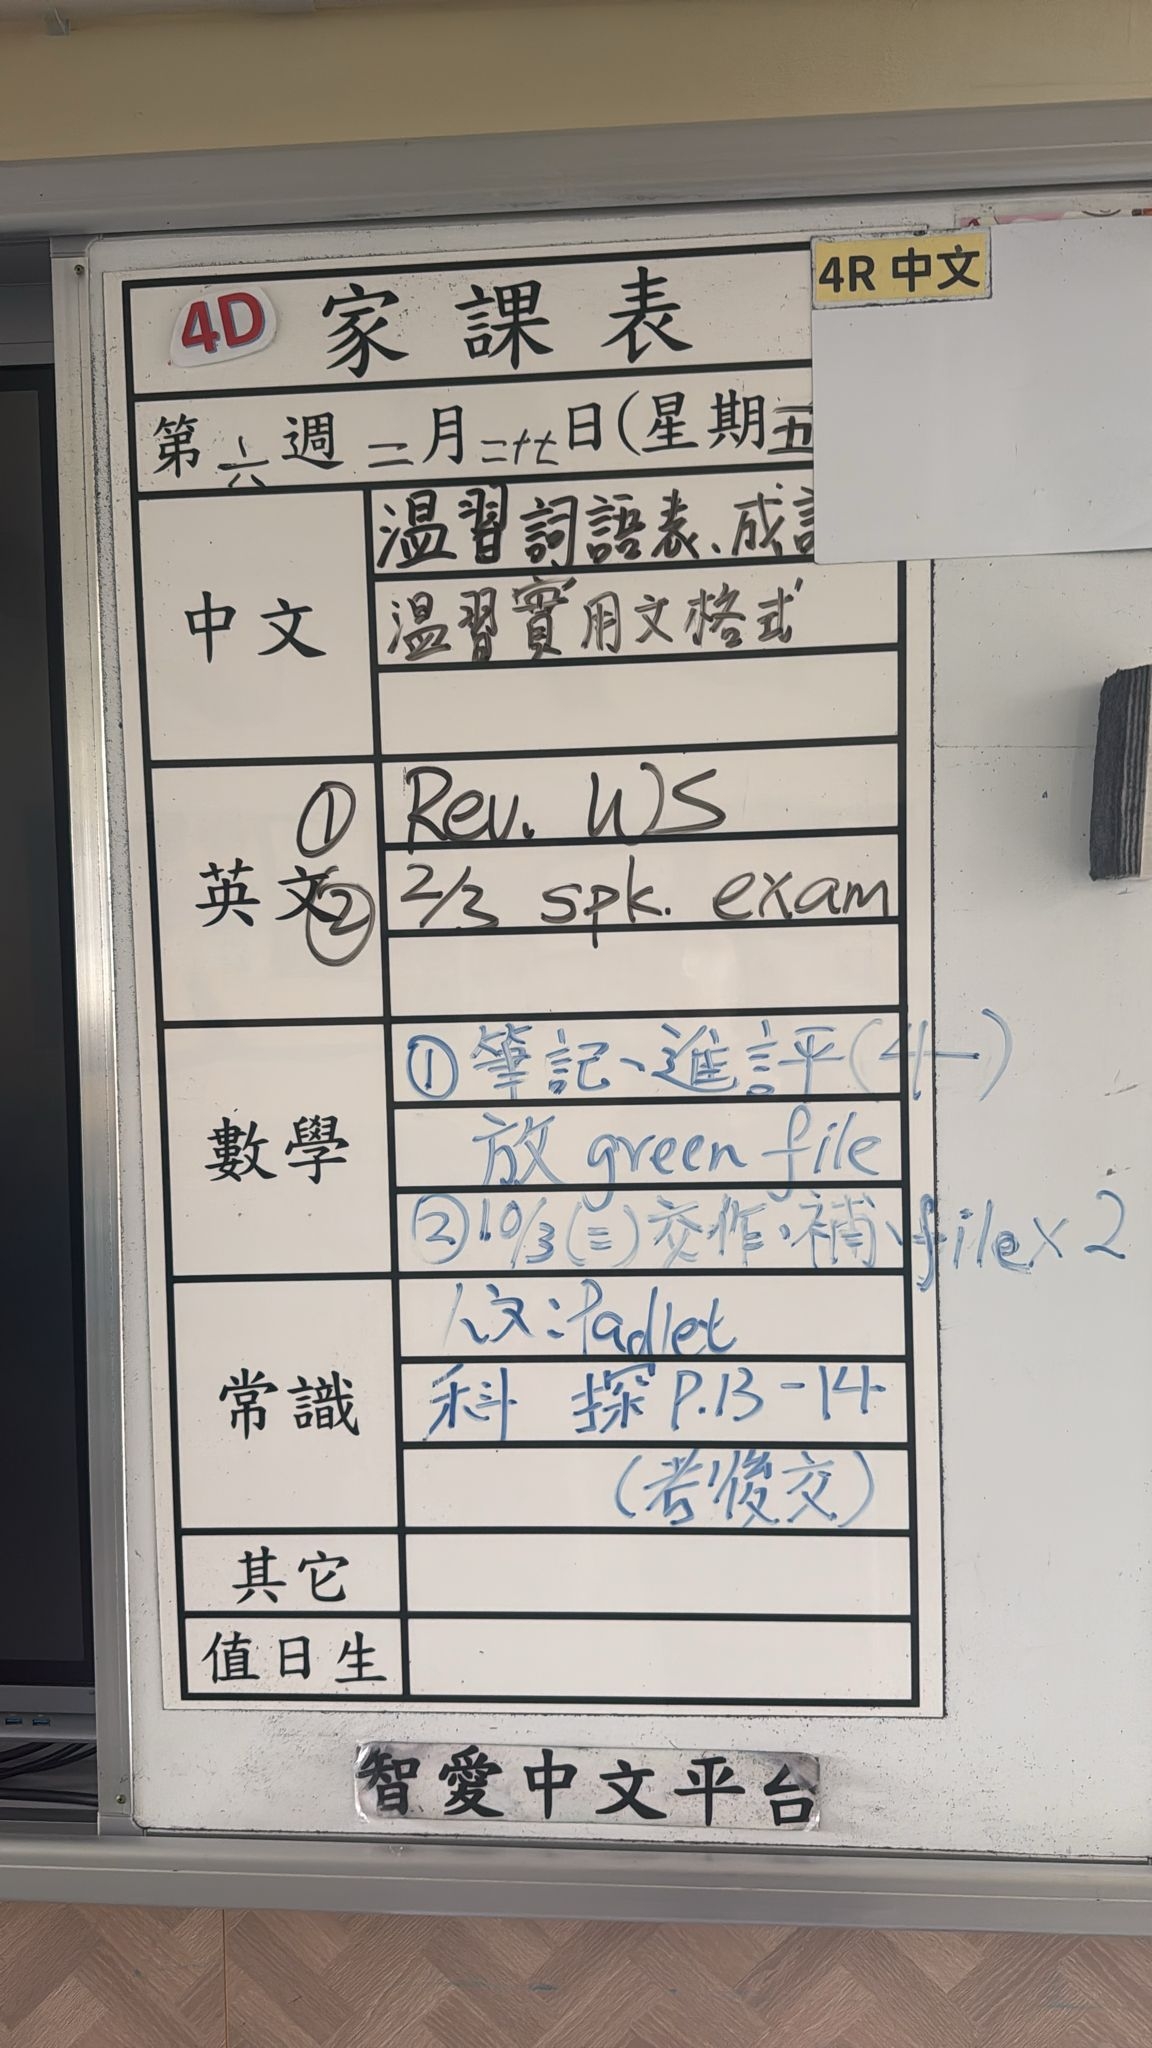 4R 中文
4D 家課表
第六週二月二十七日(星期五
中文
温習詞語表、成語
温習實用文格式
英文
① Rev. WS
② 2/3 spk. exam
數學
①筆記、進評(4一)
放 green file
②10/3(三)交作、補、file×2
常識
人文:Padlet
科 探 P.13-14
(考後交)
其它
值日生
智愛中文平台